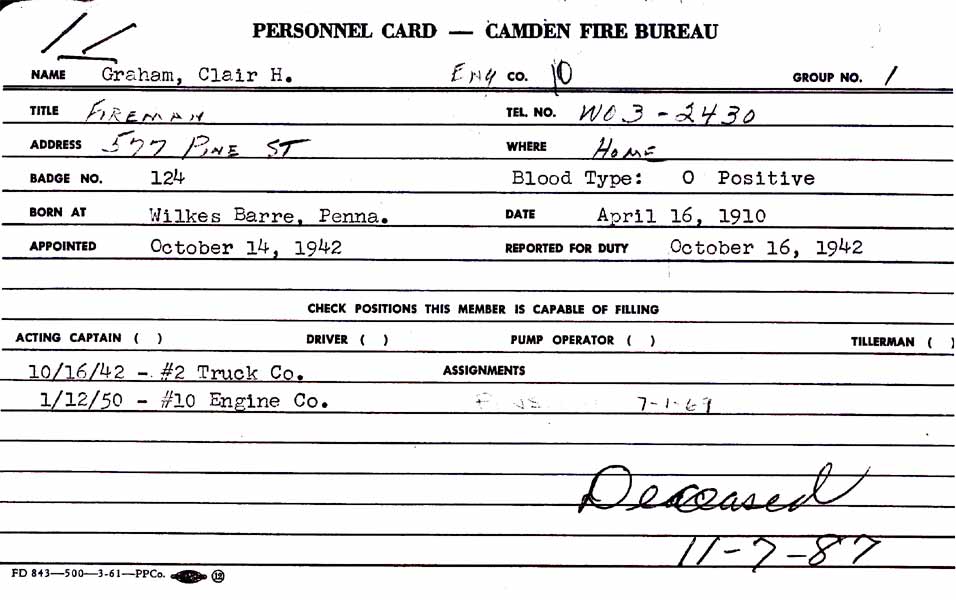 PERSONNEL CARD — CAMDEN FIRE BUREAU
NAME Graham, Clair H. Eng CO. 10 GROUP NO. 1
TITLE FIREMAN TEL. NO. WO3-2430
ADDRESS 577 PINE ST WHERE HOME
BADGE NO. 124 Blood Type: O Positive
BORN AT Wilkes Barre, Penna. DATE April 16, 1910
APPOINTED October 14, 1942 REPORTED FOR DUTY October 16, 1942
CHECK POSITIONS THIS MEMBER IS CAPABLE OF FILLING
ACTING CAPTAIN ( ) DRIVER ( ) PUMP OPERATOR ( ) TILLERMAN ( )
10/16/42 - #2 Truck Co. ASSIGNMENTS
1/12/50 - #10 Engine Co. 7-1-69
Deceased
11-7-87
FD 843—500—3-61—PPCo. 12